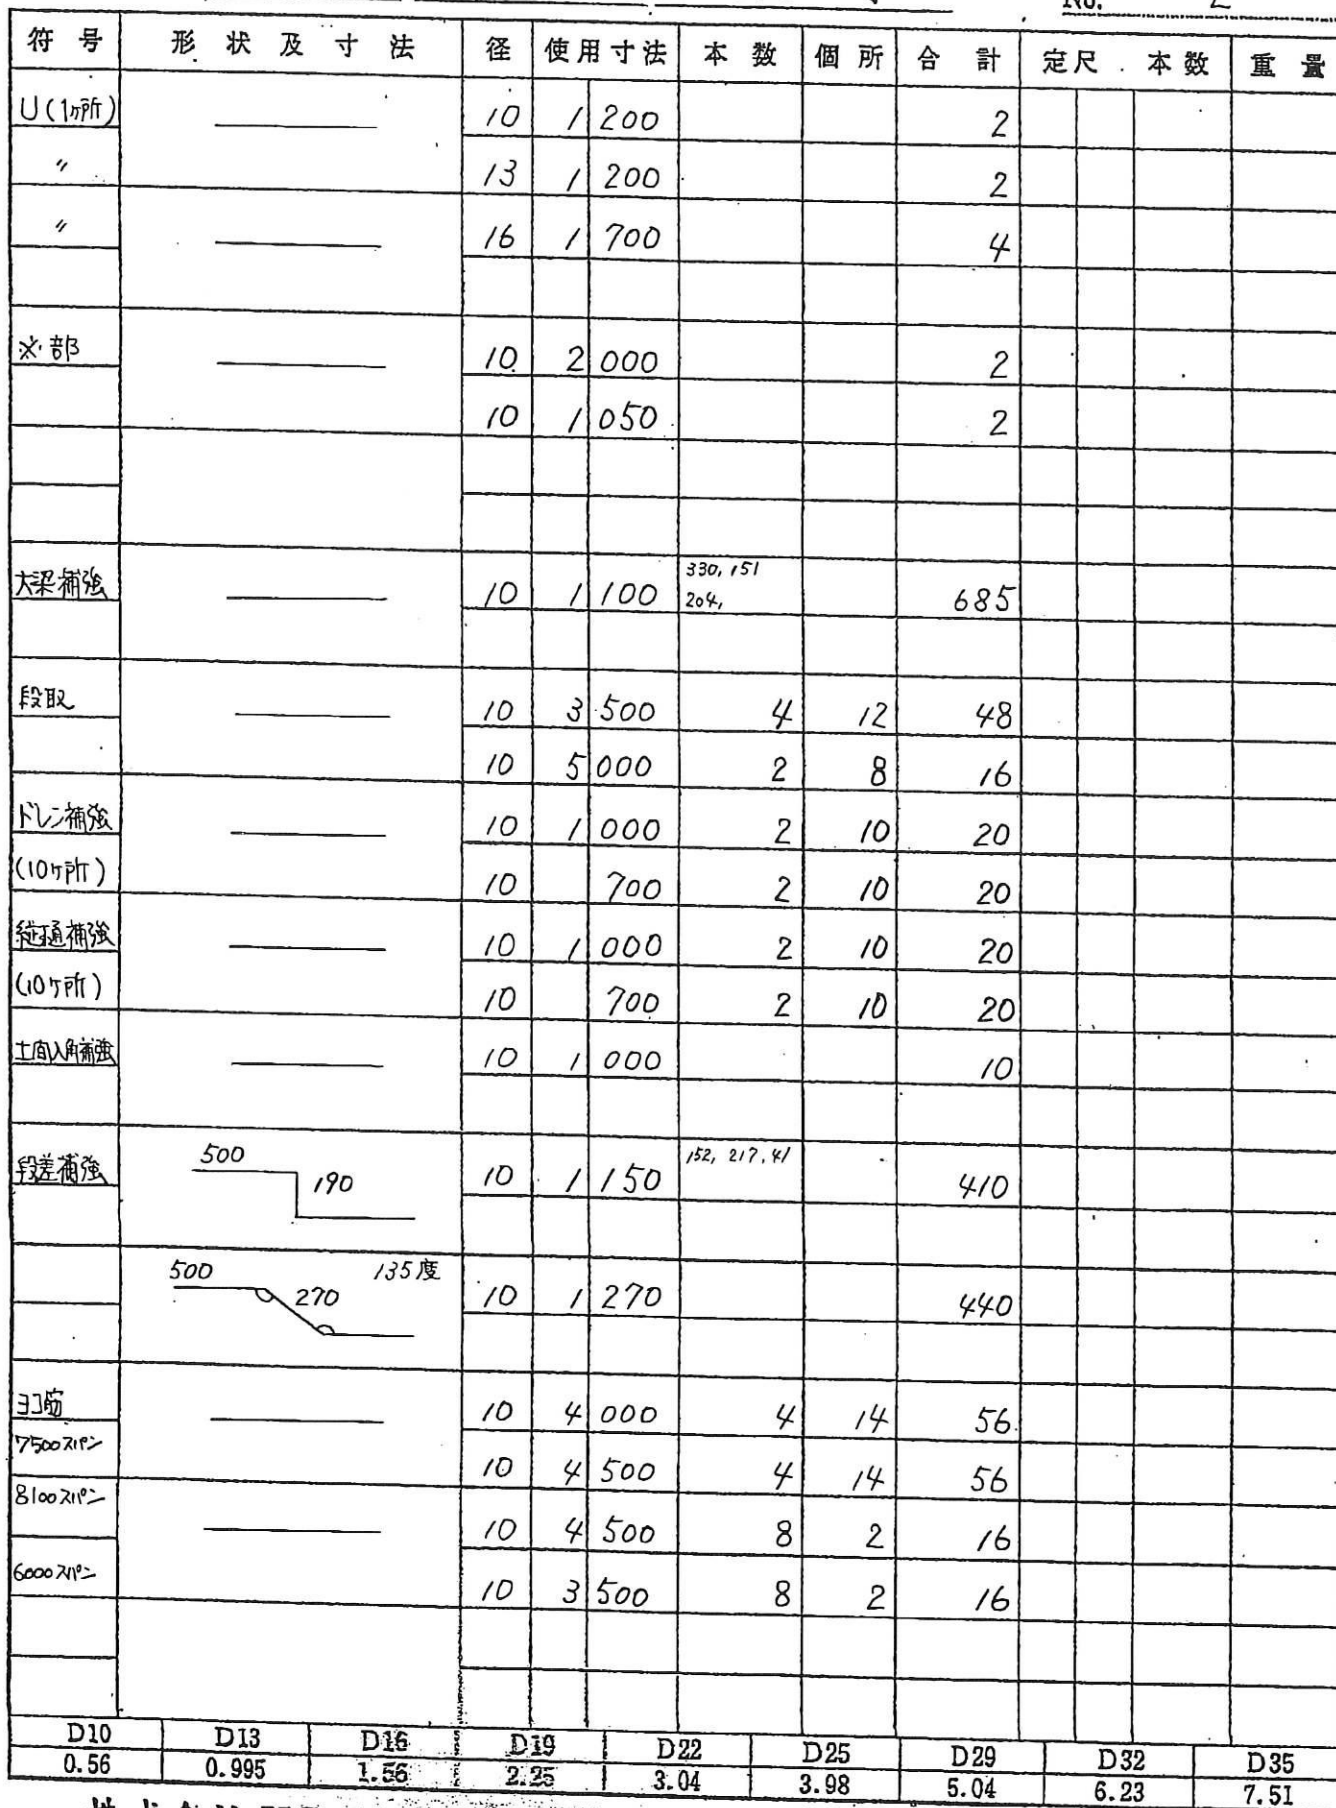 No. 2
符号 形状及寸法 径 使用寸法 本数 個所 合計 定尺 . 本数 重量
U(1ヶ所) 10 1 200 2
〃 13 1 200 2
〃 16 1 700 4
※部 10 2 000 2
10 1 050 2
大梁補強 10 1 100 330, 151 204, 685
段取 10 3 500 4 12 48
10 5 000 2 8 16
ドレン補強 10 1 000 2 10 20
(10ヶ所) 10 700 2 10 20
縦樋補強 10 1 000 2 10 20
(10ヶ所) 10 700 2 10 20
土間入角補強 10 1 000 10
段差補強 500 190 10 1 150 152, 217, 41 410
500 270 135度 10 1 270 440
ヨコ筋 10 4 000 4 14 56
7500スパン 10 4 500 4 14 56
8100スパン 10 4 500 8 2 16
6000スパン 10 3 500 8 2 16
D10 D13 D16 D19 D22 D25 D29 D32 D35
0.56 0.995 1.56 2.25 3.04 3.98 5.04 6.23 7.51